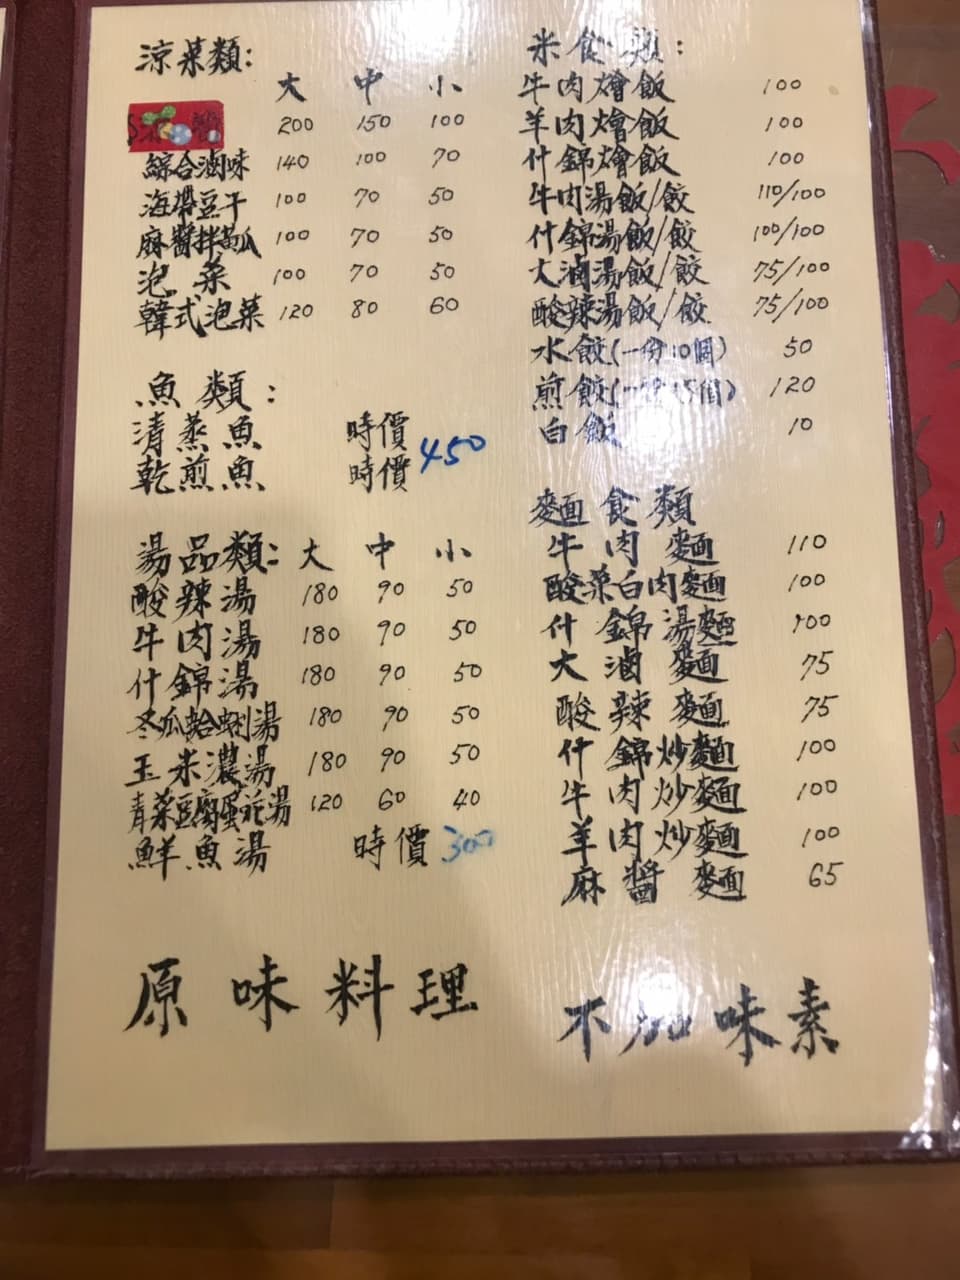 涼菜類:
大 中 小
200 150 100
綜合滷味 140 100 70
海帶豆干 100 70 50
麻醬拌黃瓜 100 70 50
泡菜 100 70 50
韓式泡菜 120 80 60
魚類:
清蒸魚 時價
乾煎魚 時價
450
湯品類: 大 中 小
酸辣湯 180 90 50
牛肉湯 180 90 50
什錦湯 180 90 50
冬瓜蛤蜊湯 180 90 50
玉米濃湯 180 90 50
青菜豆腐蛋花湯 120 60 40
鮮魚湯 時價 300
原味料理
米食類:
牛肉燴飯 100
羊肉燴飯 100
什錦燴飯 100
牛肉湯飯/餃 110/100
什錦湯飯/餃 100/100
大滷湯飯/餃 75/100
酸辣湯飯/餃 75/100
水餃(一份10個) 50
煎餃(一份15個) 120
白飯 10
麵食類
牛肉麵 110
酸菜白肉麵 100
什錦湯麵 100
大滷麵 75
酸辣麵 75
什錦炒麵 100
牛肉炒麵 100
羊肉炒麵 100
麻醬麵 65
不加味素